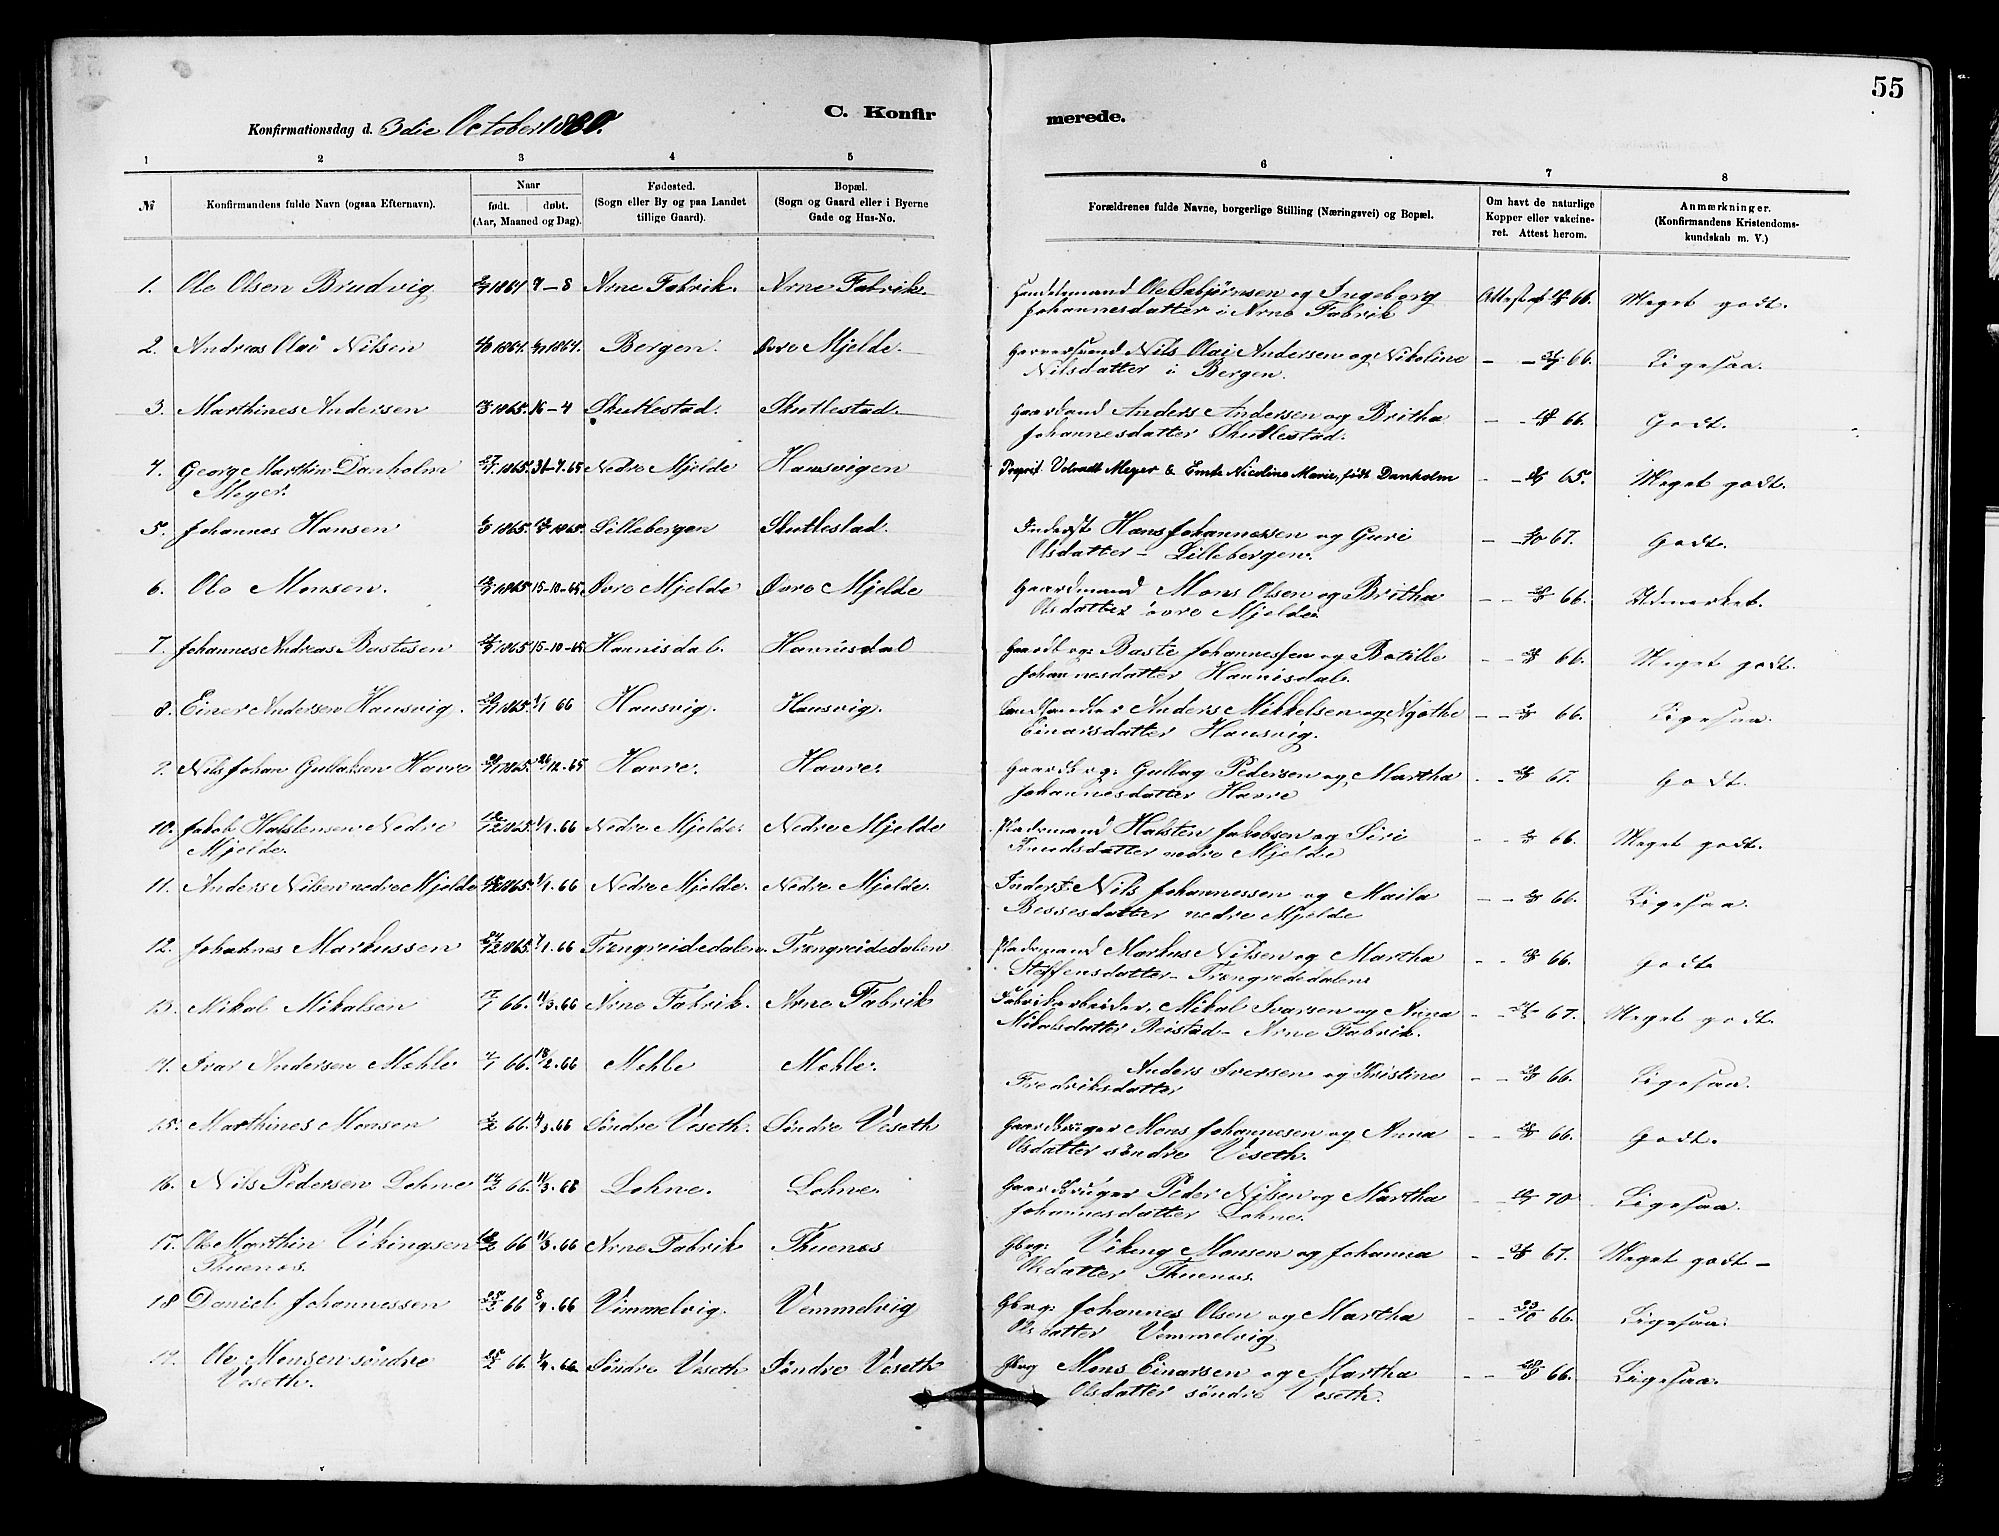 55
C. Konfirmerede.
Konfirmationsdag d. 3die October 1880.
1 2 3 4 5 6 7 8
№
Konfirmandens fulde Navn (ogsaa Efternavn).
Naar
født. døbt.
(Aar, Maaned og Dag).
Fødested.
(Sogn eller By og paa Landet
tillige Gaard).
Bopæl.
(Sogn og Gaard eller i Byerne
Gade og Hus-No.
Forældrenes fulde Navne, borgerlige Stilling (Næringsvei) og Bopæl.
Om havt de naturlige
Kopper eller vakcine-
ret. Attest herom.
Anmærkninger.
(Konfirmandens Kristendoms-
kundskab m. V.)
1. Ole Olsen Brudvig 1864 7-8 Arne Fabrik. Arne Fabrik. Ole Sebjörnsen og Ingeborg Attest 66. Meget godt.
Johannesdatter i Arne Fabrik
2. Andreas Olai Nilsen 1864. 1864. Bergen. Övre Mjelde. Nils Olai Andersen og Nikoline - - 66. Ligesaa.
Nilsdatter i Bergen.
3. Marthines Andersen 1865. 16-4 Skutlestad. Skutlestad. Anders Andersen og Britha - - 66. Godt.
Johannesdatter Skutlestad.
4. George Marthin Danholm 1865. 31-7.65 Nedre Mjelde Hausvigen Proprit. Meyer & Nicoline Marie, født Danholm - - 65. Meget godt.
Meyer.
5. Johannes Hansen 1865. 1865. Lillebergen Skutlestad. Inderst Hans Johannessen og Guri - - 67. Godt.
Olsdatter - Lillebergen.
6. Ole Monsen. 1865 15-10-65. Övre Mjelde Övre Mjelde Gaardmand Mons Olsen og Britha - - 66. Udmærket.
Olsdatter övre Mjelde.
7. Johannes Andreas Bastesen 1865 15-10-65 Hannisdal. Hannisdal Baste Johannessen og Botille - - 66. Meget godt.
Johannesdatter Hannisdal.
8. Einer Andersen Hausvig. 1865. 1/1 66 Hausvig. Hausvig. Landhandler Anders Mikkelsen og Agathe - - 66. Ligesaa.
Einarsdatter Hausvig.
9. Nils Johan Gullaksen Havre 1865. 26/12.65 Havre. Havre. Gullag Pedersen og Martha - - 67. Godt.
Johannesdatter Havre
10. Jakob Halstensen Nedre 1865. 1/1.66 Nedre Mjelde. Nedre Mjelde Pladsmand Halsten Jakobsen og Siri - - 66. Meget godt.
Mjelde. Knudsdatter nedre Mjelde
11. Anders Nilsen nedre Mjelde 1865. 1/1.66 Nedre Mjelde. Nedre Mjelde. Inderst Nils Johannessen og Maila - - 66. Ligesaa.
Bessesdatter nedre Mjelde
12. Johannes Markussen 1865. 1.66 Trengreidedalen. Trengreidedalen Pladsmand Markus Nilsen og Martha - - 66. Godt
Steffensdatter - Trengreidedalen
13. Mikal Mikalsen 66. 11/3.66 Arne Fabrik. Arne Fabrik Fabrikarbeider Mikal Ivarsen og Anna - - 67. Meget godt.
Mikalsdatter Reistad - Arne Fabrik.
14. Ivar Andersen Mehle 66. 18/2.66 Mehle Mehle. Anders Iversen og Kristine - - 66. Ligesaa.
Fredriksdatter
15. Marthines Monsen 66. 4/3.66 Söndre Veseth. Söndre Veseth Gaardbruger Mons Johannesen og Anna - - 66. Godt.
Olsdatter söndre Veseth.
16. Nils Pedersen Lohne 66. 11/3.66 Lohne. Lohne. Gaardbruger Peder Nilsen og Martha - - 70 Ligesaa.
Johannesdatter Lohne.
17. Ole Marthin Vikingsen 66 11/3.66 Arne Fabrik Thuenes Gbrg: Viking Monsen og Johanna - - 67. Meget godt -
Thuenes. Olsdatter Thuenes.
18 Daniel Johannessen 66 8/4.66 Vimmelvig. Vemmelvig Gbrg: Johannes Olsen og Martha - - 66. Ligesaa.
Olsdatter Vemmelvig.
Ole Monsen söndre 66. 66 Söndre Veseth Söndre Veseth Gbrg Mons Einarsen og Martha - - 66. Ligesaa.
Veseth. Olsdatter söndre Veseth.